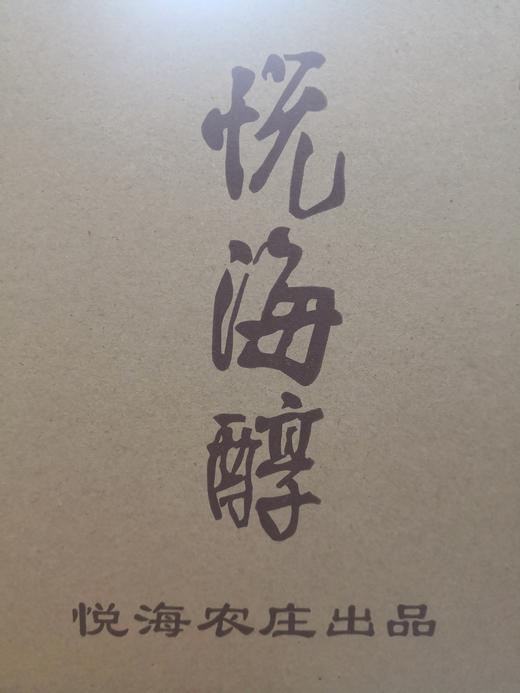 悦海醇
悦海农庄出品